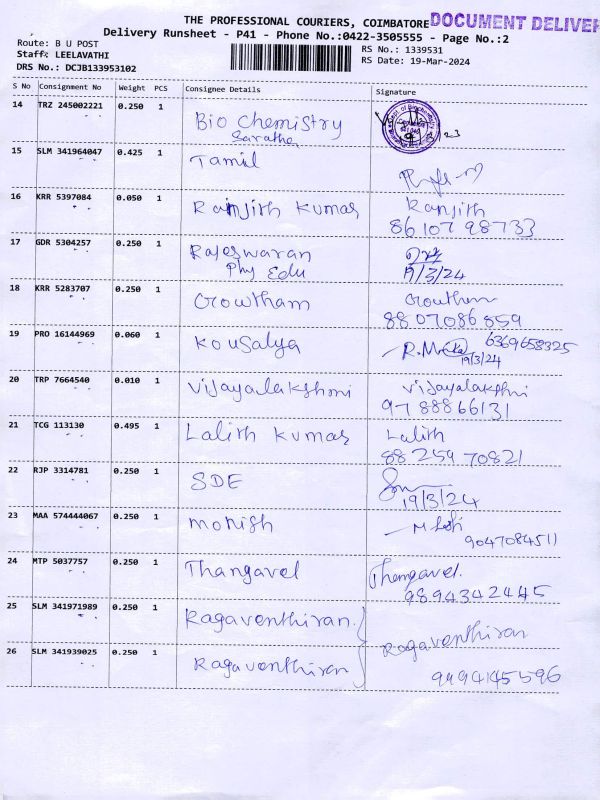 THE PROFESSIONAL COURIERS, COIMBATORE DOCUMENT DELIVER
Delivery Runsheet - P41 - Phone No.:0422-3505555 - Page No.:2
Route: B U POST
Staff: LEELAVATHI
DRS No.: DCJB133953102
RS No.: 1339531
RS Date: 19-Mar-2024
S No Consignment No Weight PCS Consignee Details Signature
14 TRZ 245002221 0.250 1 Bio Chemistry
Saratha
15 SLM 341964047 0.425 1 Tamil
16 KRR 5397084 0.050 1 Ranjith Kumar Ranjith
86107 98733
17 GDR 5304257 0.250 1 Rajeswaran
Phy Edu 19/3/24
18 KRR 5283707 0.250 1 Gowtham Gowtham
8807086859
19 PRO 16144969 0.060 1 Kousalya 6369658325
19/3/24
20 TRP 7664540 0.010 1 Vijayalakshmi Vijayalakshmi
9788866131
21 TCG 113130 0.495 1 Lalith Kumar Lalith
88259 70821
22 RJP 3314781 0.250 1 SDE
19/3/24
23 MAA 574444067 0.250 1 Monish
9047084511
24 MTP 5037757 0.250 1 Thangavel Thangavel.
9894342445
25 SLM 341971989 0.250 1 Ragaventhiran
Ragaventhiran
26 SLM 341939025 0.250 1 Ragaventhiran
9494145596